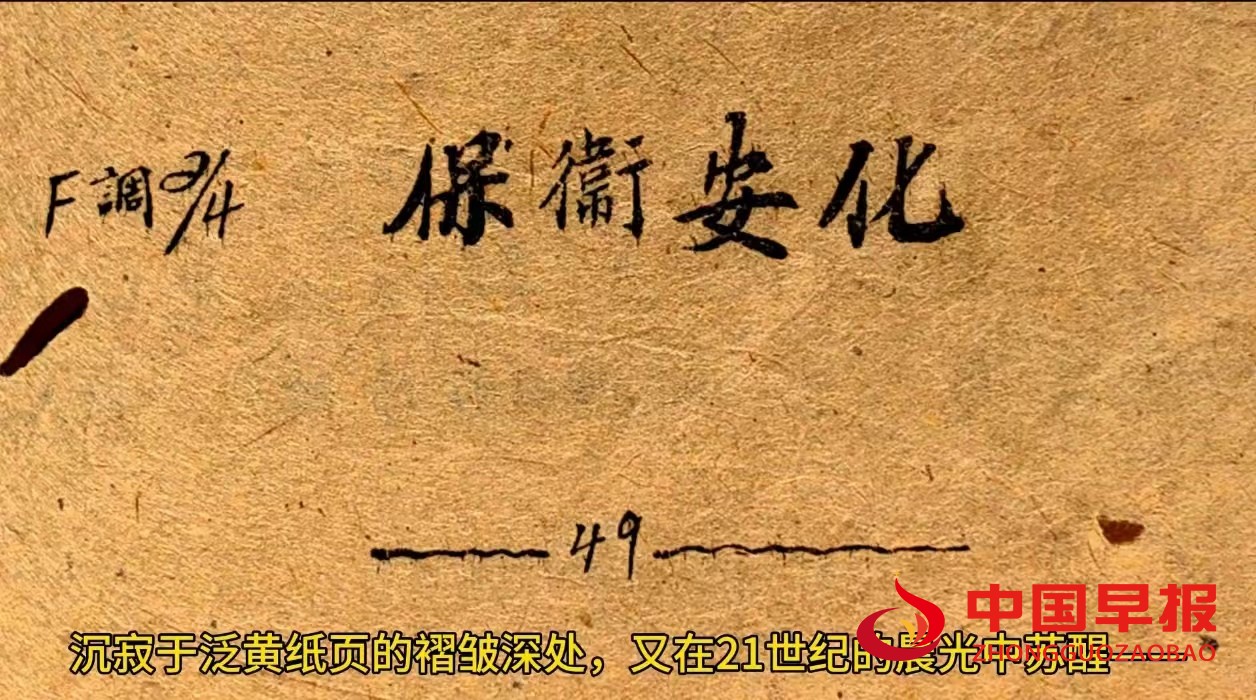 F調2/4 保衛安化
49
中国早报
ZHONGGUOZAOBAO
沉寂于泛黄纸页的褶皱深处，又在21世纪的晨光中苏醒——